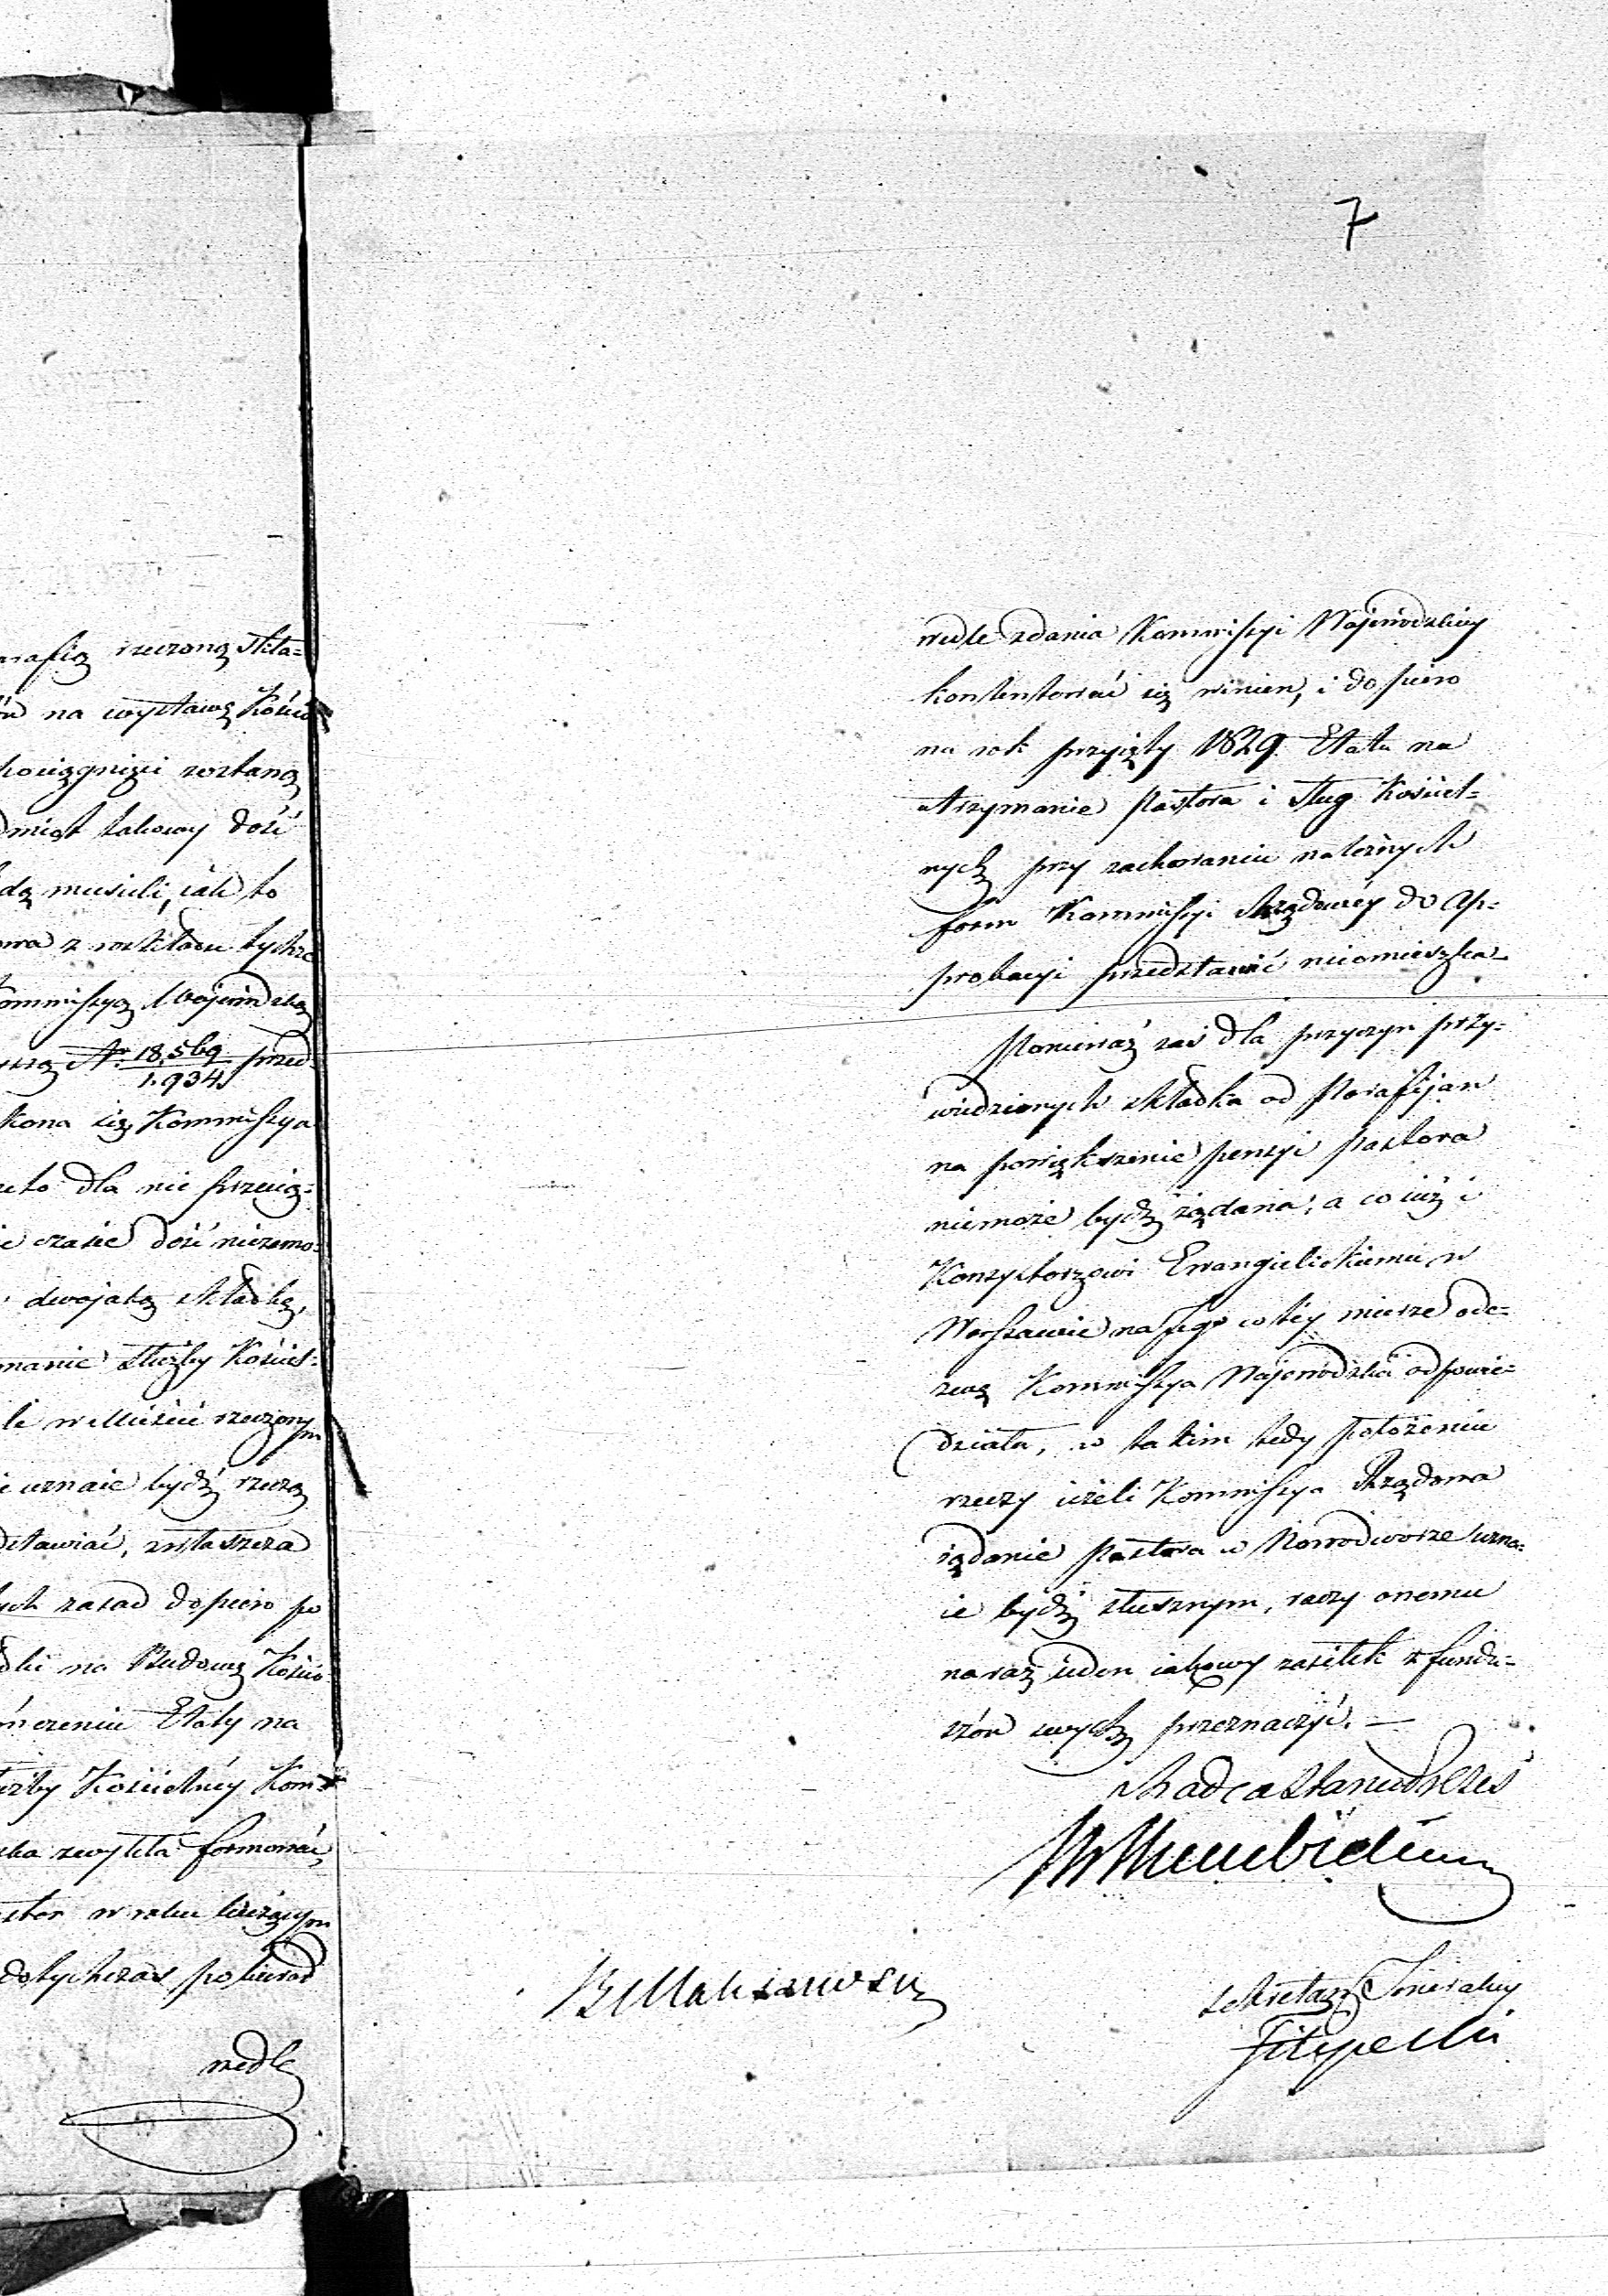 rafią rzeczoną skła=
na wystawę Kościo
pociągnięci zostaną
dmiot takowy dość
dą musieli, iak to
owa z rozkładu tychże
ommissyą Wojewódzką
N. 18,569/1.934 przed=
kona się Kommissya
dla nie przecią=
czasie dość niezamo=
dwojaką składkę,
manie służby Kościel=
le w Mieście rzeczonym
uznaie bydź rzeczą
dstawiać, zwłaszcza
ych zasad dopiero po
dki na Budowę Kościo=
Etaty na
użby Kościelnéy Kom=
ska zwykła formować,
w roku bieżącym
dotychczas pobierał
wedle
7
wedle zdania Kommissyi Wojewódzkiey
kontentować się winien, i dopiero
na rok przyszły 1829 Etata na
utrzymanie Pastora i sług Kościel=
nych przy zachowaniu należnych
form Kommissyi Rządowéy do Ap=
probacyi przedstawić nieomieszka
Ponieważ zaś dla przyczyn przy=
wiedzionych składka od Parafijan
na powiększenie pensyi Pastora
niemoże bydź żądana, a co iuż i
Konsystorzowi Ewangielickiemu w
Warszawie na Jego w téy mierze ode=
zwę Kommissya Wojewódzka odpowie=
działa, w takim tedy położeniu
rzeczy ieżeli Kommissya Rządowa
żądanie Pastora w Nowodworze uzna=
ie bydź słusznym, raczy onemu
na raz ieden iakowy zasiłek z fundu=
szów swych przeznaczyć. —
Radca Stanu Prezes
Sekretarz Jeneralny
Filipecki